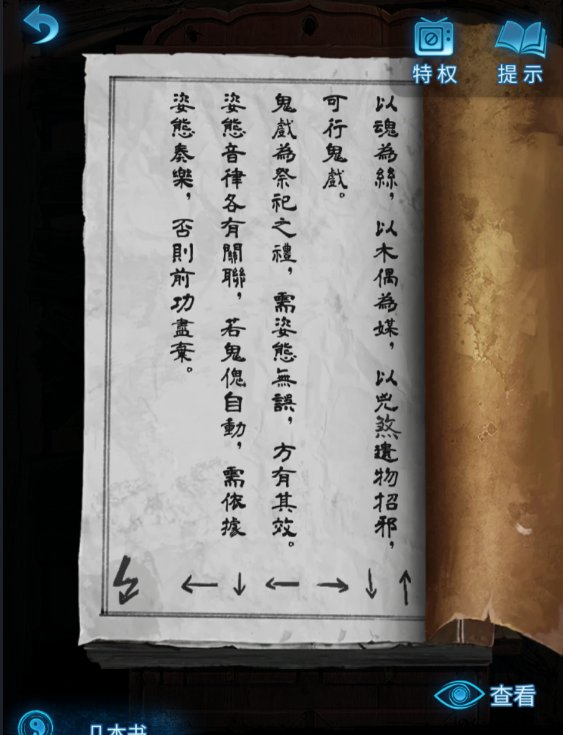 特权
提示
以魂為絲，以木偶為媒，以兇煞遺物招邪，
可行鬼戲。
鬼戲為祭祀之禮，需姿態無誤，方有其效。
姿態音律各有關聯，若鬼傀自動，需依據
姿態奏樂，否則前功盡棄。
← ↓ ← → ↓ ↑
查看
几本书